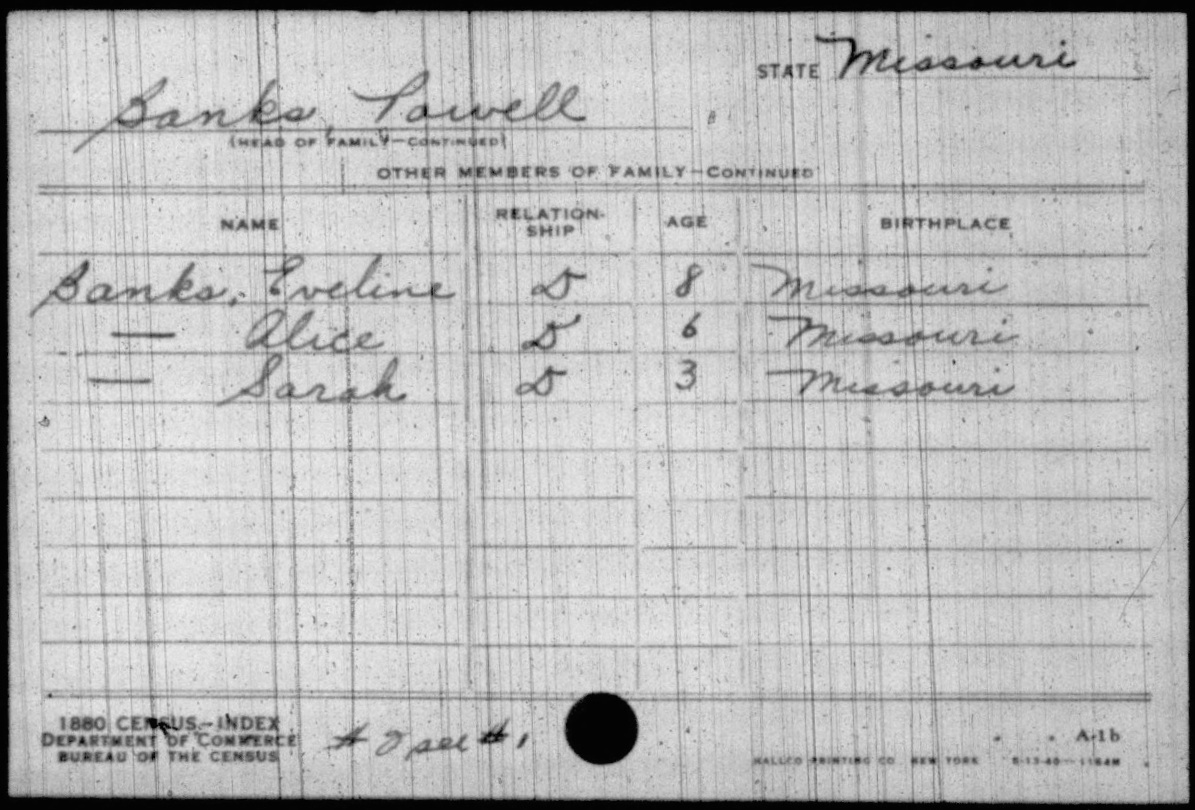 STATE Missouri
Banks, Powell
(HEAD OF FAMILY—CONTINUED)
OTHER MEMBERS OF FAMILY—CONTINUED
NAME RELATION-SHIP AGE BIRTHPLACE
Banks, Eveline D 8 Missouri
— Alice D 6 Missouri
— Sarah D 3 Missouri
1880 CENSUS—INDEX
DEPARTMENT OF COMMERCE
BUREAU OF THE CENSUS
# 2 see # 1
A-1b
PRINTING CO. NEW YORK